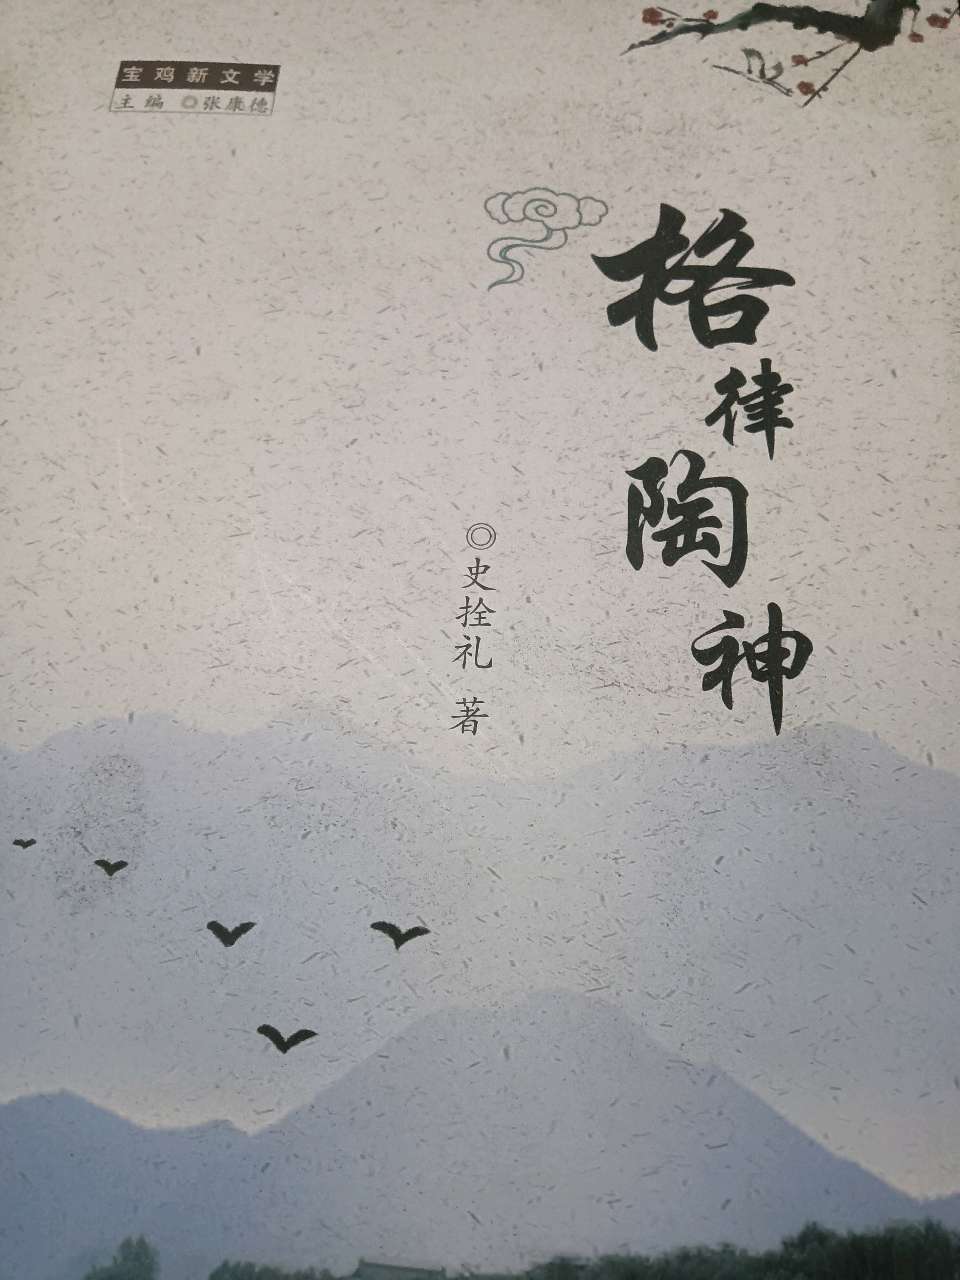 宝鸡新文学
主编 ◎张康德
格律陶神
◎史拴礼 著